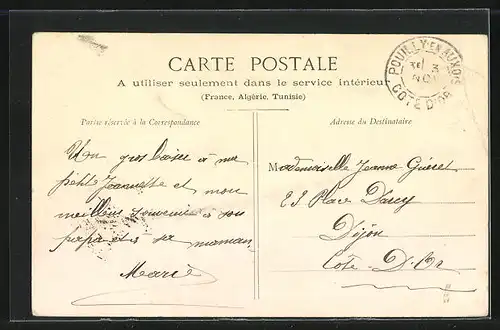 CARTE POSTALE
A utiliser seulement dans le service intérieur
(France, Algérie, Tunisie)
POUILLY-EN-AUXOIS
3
COTE D'OR
Partie réservée à la Correspondance
Adresse du Destinataire
Un gros baiser à ma
petite Jeannette et mon
meilleur souvenir à son
papa et à sa maman
Marie
Mademoiselle Jeanne
23 Place Darcy
Dijon
Côte D'Or